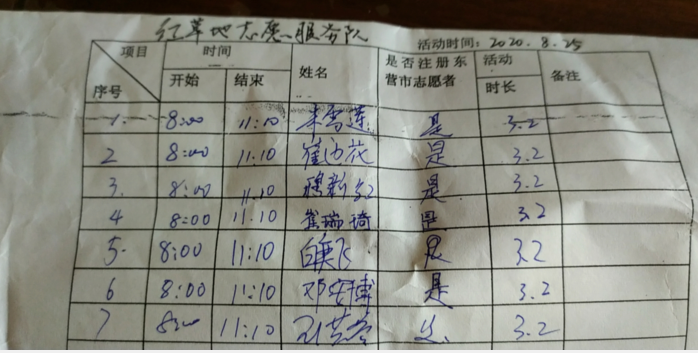 红草地志愿服务队
活动时间：2020.8.25
项目 序号 时间 开始 结束 姓名 是否注册东营市志愿者 活动时长 备注
1 8:00 11:10 李雪莲 是 3.2
2 8:00 11:10 崔 花 是 3.2
3. 8:00 11.10 穆新红 是 3.2
4 8:00 11.10 崔瑞琦 是 3.2
5. 8:00 11:10 飞 是 3.2
6 8:00 11:10 邓安博 是 3.2
7 8:00 11:10 是 3.2